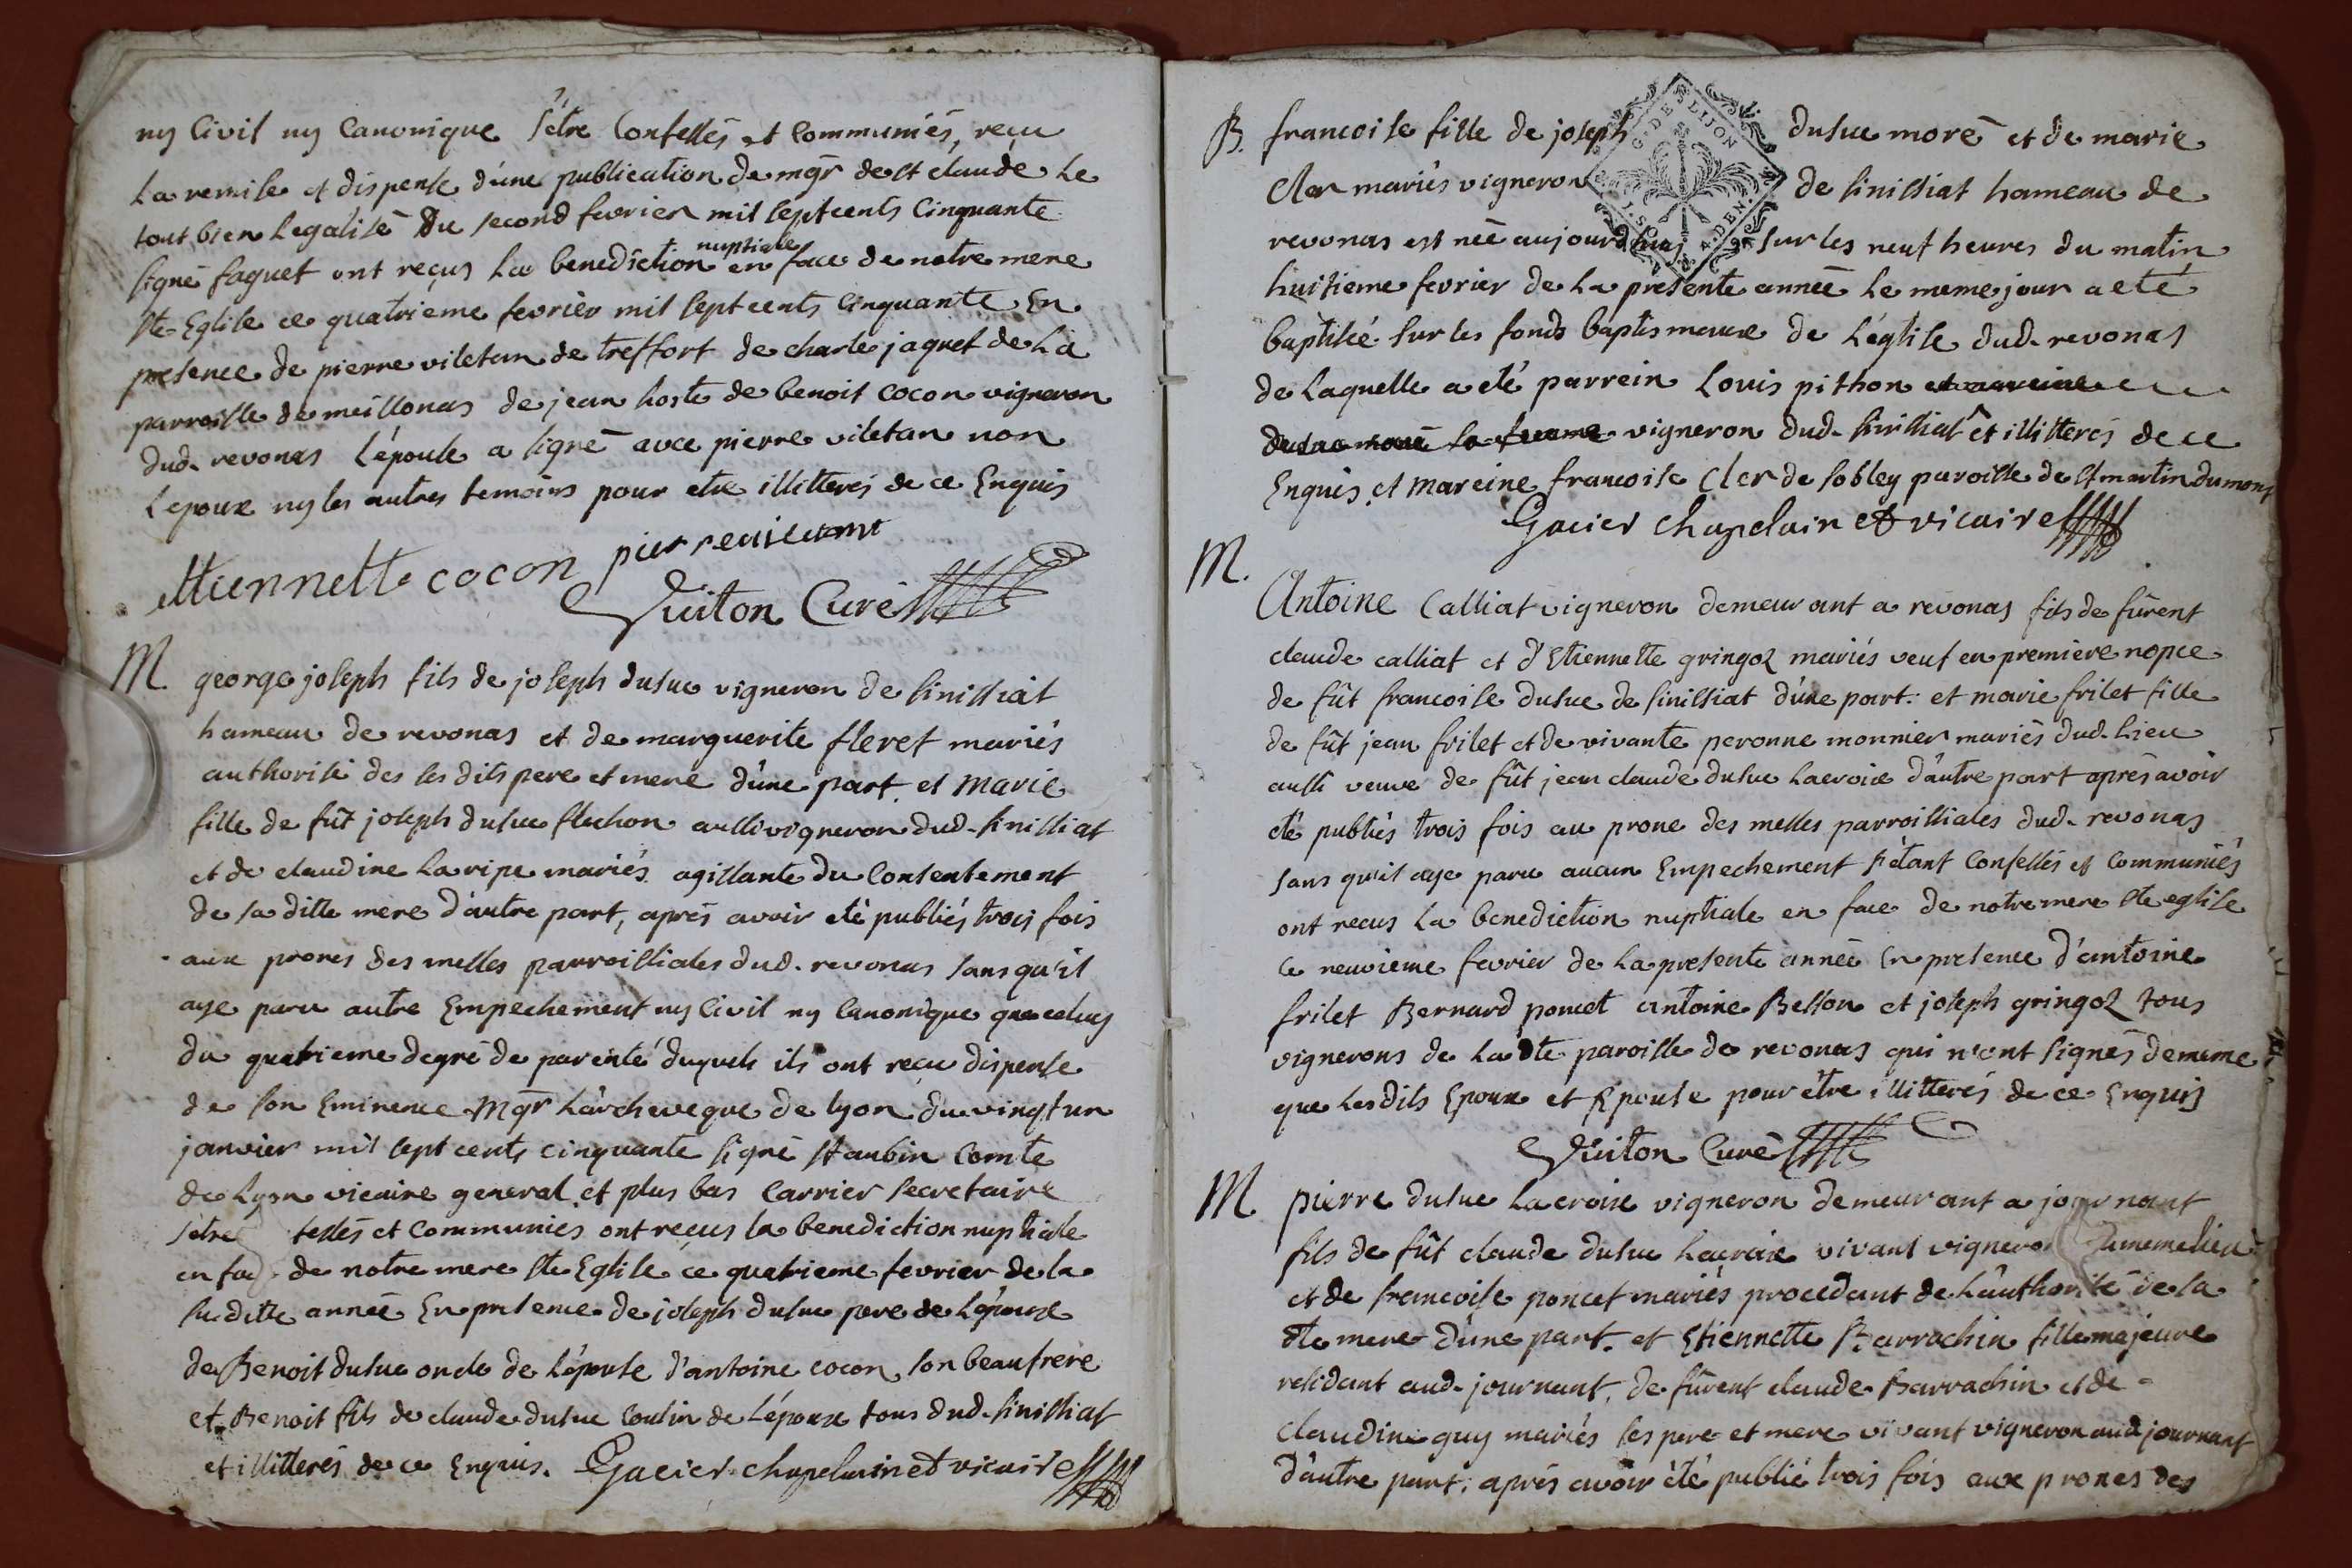 ny Civil ny Canonique s'etre Confessés et Communiés, reçu
la remise et dispense d'une publication de mgr de st claude le
tout bien legalisé Du second fevrier mil sept cents Cinquante
signé faguet ont reçus la benediction nuptiale en face de notre mere
ste Eglise ce quatrieme fevrier mil sept cents Cinquante En
presence de pierre viletan de treffort de charle jaquet de la
parroisse de meillonas de jean hoste de benoit cocon vigneron
dud. revonas L'épouse a signé avec pierre viletan non
L'epoux ny les autres temoins pour etre illitterés de ce Enquis
ettiennette cocon pierre
Vuiton Curé
M. george joseph fils de joseph dusuc vigneron de sinissiat
hameau de revonas et de marguerite fleret mariés
authorisé des ses dits pere et mere d'une part. et Marie
fille de fût joseph dusuc fluchon aussi vigneron dud. sinissiat
et de claudine Laripe mariés agissante du Consentement
de sa ditte mere d'autre part, aprés avoir eté publiés trois fois
aux prones des messes parroissiales dud. revonas sans qu'il
aye paru autre Empechement ny Civil ny Canonique que celuy
du quatrieme degré de parenté duquels ils ont reçu dispense
de son Eminence Mgr L'archeveque de lyon du vingt un
janvier mil sept cents cinquante signé St aubin Comte
de Lyon vicaire general et plus bas Carrier secretaire
s'etre fessés et Communiés ont reçus la benediction nuptiale
en fac de notre mere ste Eglise ce quatrieme fevrier de la
suditte année En presence de joseph dusuc pere de L'epoux
de Benoit dusuc oncle de L'épouse d'antoine cocon son beaufrere
et Benoit fils de claude dusuc Cousin de L'époux tous dud. sinissiat
et illitterés de ce Enquis. Gacier chapelain et vicaire
B. francoise fille de joseph dusuc moré et de marie
Cler mariés vigneron de sinissiat hameau de
revonas est née aujourd'huy sur les neuf heures du matin
huitieme fevrier de la presente année le meme jour a eté
baptisée sur les fonds baptismaux de L'église dud. revonas
de Laquelle a eté parrein Louis pithon et mareine
dusuc moré sa femme vigneron dud. sinissiat et illitterés de ce
Enquis. et mareine francoise Cler de sobley paroisse de st martin du mont
Gacier chapelain et vicaire
M. Antoine Calliat vigneron demeurant a revonas fils de fûrent
claude calliat et d'Etiennette gringoz mariés veuf en premiere nopce
de fût francoise dusuc de sinissiat d'une part: et marie frilet fille
de fût jean frilet et de vivante peronne monnier mariés dud. Lieu
aussi veuve de fût jean claude dusuc Lacroix d'autre part aprés avoir
eté publiés trois fois au prone des messes parroissiales dud. revonas
sans qu'il aye paru aucun Empechement s'étant Confessés et Communiés
ont recus la benediction nuptiale en face de notre mere ste eglise
Ce neuvieme fevrier de la presente année En presence d'antoine
frilet Bernard poncet antoine Besson et joseph gringoz tous
vignerons de la dte paroisse de revonas qui n'ont signés de meme
que Lesdits Epoux et Epouse pour être illitterés de ce Enquis
Vuiton Curé
M. pierre dusuc Lacroix vigneron demeurant a journant
fils de fût claude dusuc Lacroix vivant vigneron du meme lieu
et de francoise poncet mariés procedant de L'authorité de sa
dte mere d'une part. et Etiennette Barrachin fille majeure
residant aud. journant, de fûrent claude Barrachin et de
Claudine guy mariés ses pere et mere vivant vigneron aud journant
d'autre part: aprés avoir été publié trois fois aux prones des